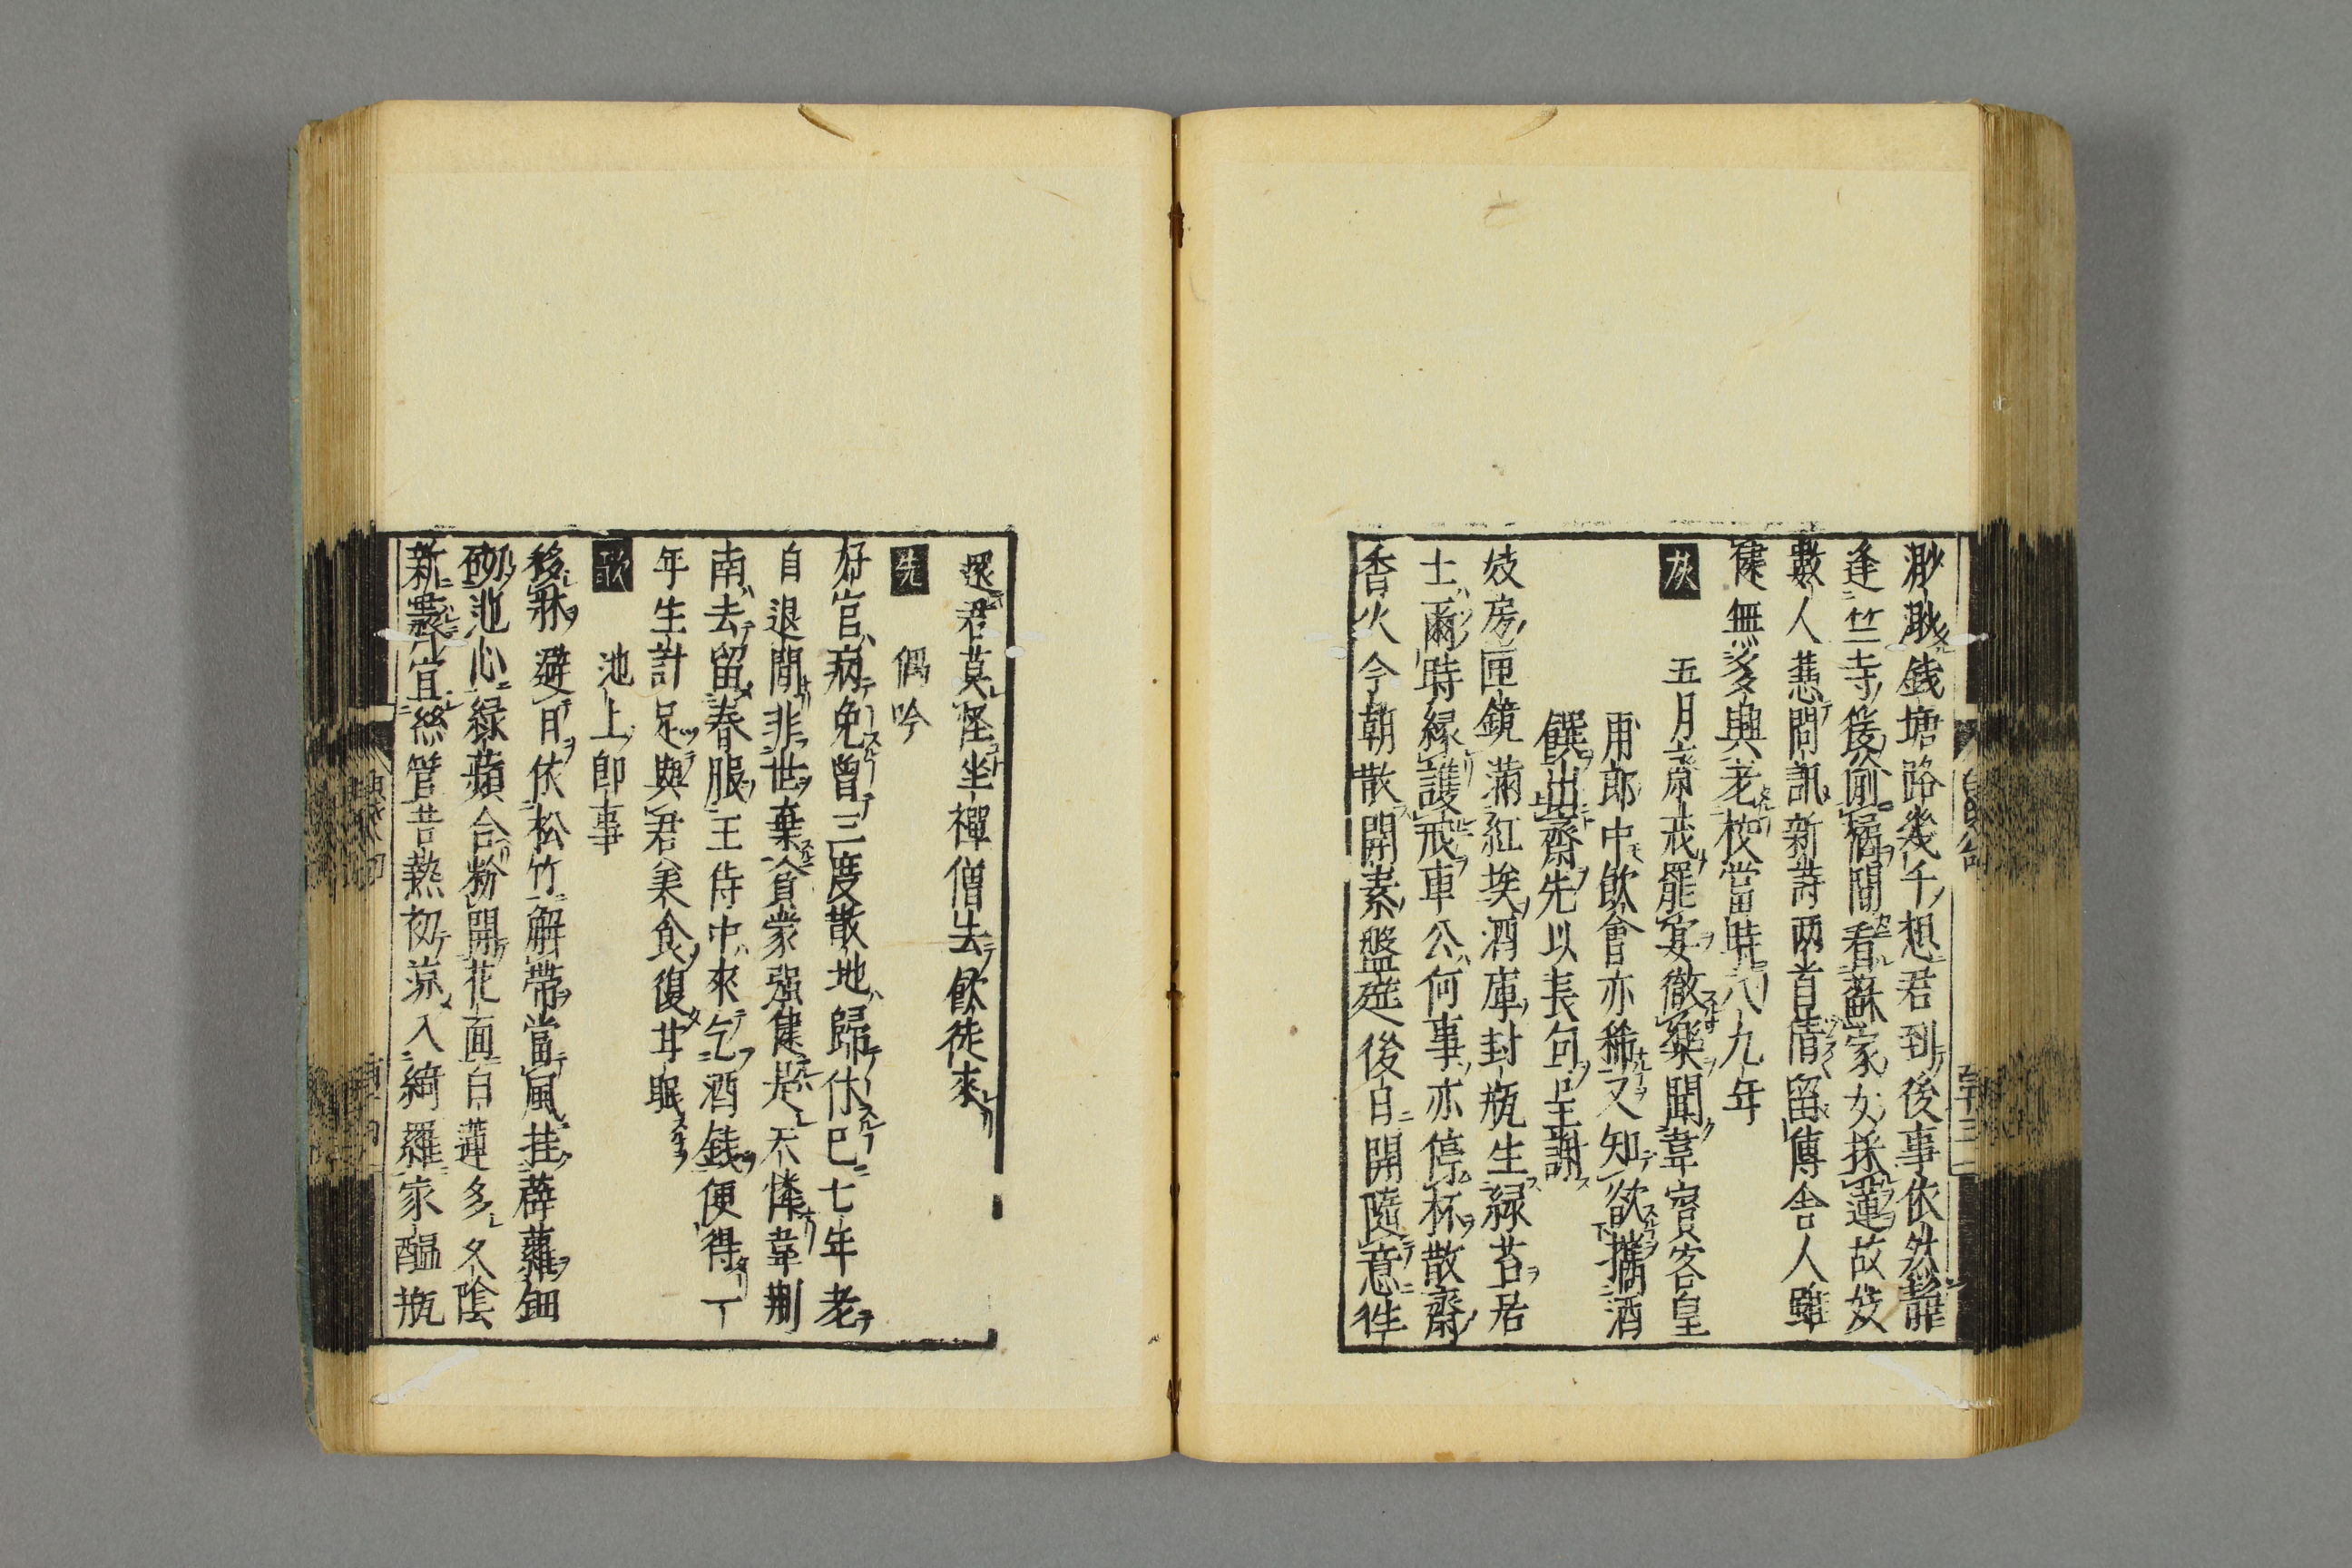 渺渺錢塘路幾千想君到後事依然靜
逢竺寺猿偷橘閒看蘇家女採蓮故妓
數人慿問訊新詩兩首倩留傳舍人雖
健無多興老校當時八九年
灰　五月齋戒罷宴徹樂聞韋賓客皇
甫郎中飲會亦稀又知欲攜酒
饌出齋先以長句呈謝
妓房匣鏡滿紅埃酒庫封瓶生綠苔居
士爾時緣護戒車公何事亦停杯散齋
香火今朝散開素盤筵後日開隨意往
還君莫怪坐禪僧去飲徒來
先　偶吟
好官病免曾三度散地歸休巳七年老
自退閒非世棄貧蒙強健是天憐韋荆
南去留春服王侍中來乞酒錢便得一
年生計足與君美食復甘眠
歌　池上即事
移牀避日依松竹解帶當風挂薜蘿鈿
砌池心綠蘋合粉開花面白蓮多久陰
新霽宜絲管苦熱初涼入綺羅家醖瓶